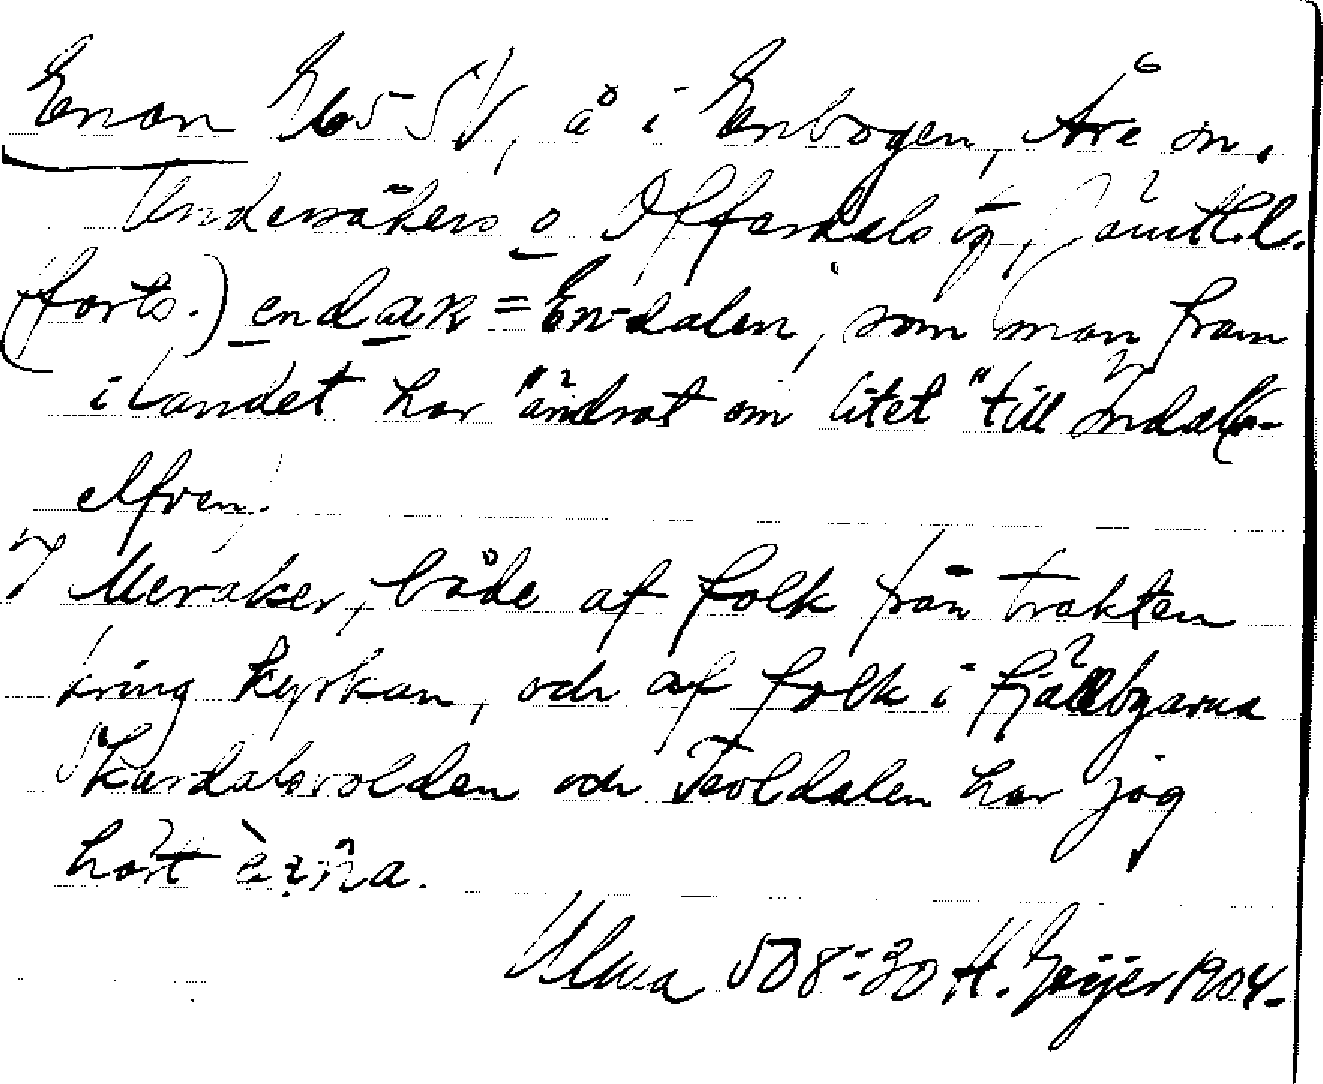 Enan G65 SV, å i Enbogen, Åre sn.
Undersåkers o Offerdals tg, Jämtl.l.
(forts.) endaɶn = En-dalen, som man fram
i landet har "ändrat om litet" till Indals-
elfven!
Meraker, både af folk från trakten
kring kyrkan, och af folk i fjällbyarna
Skurdalsvolden och Tevldalen har jag
hört èṇna.
Ulma 508:30 H. Geijer 1904.